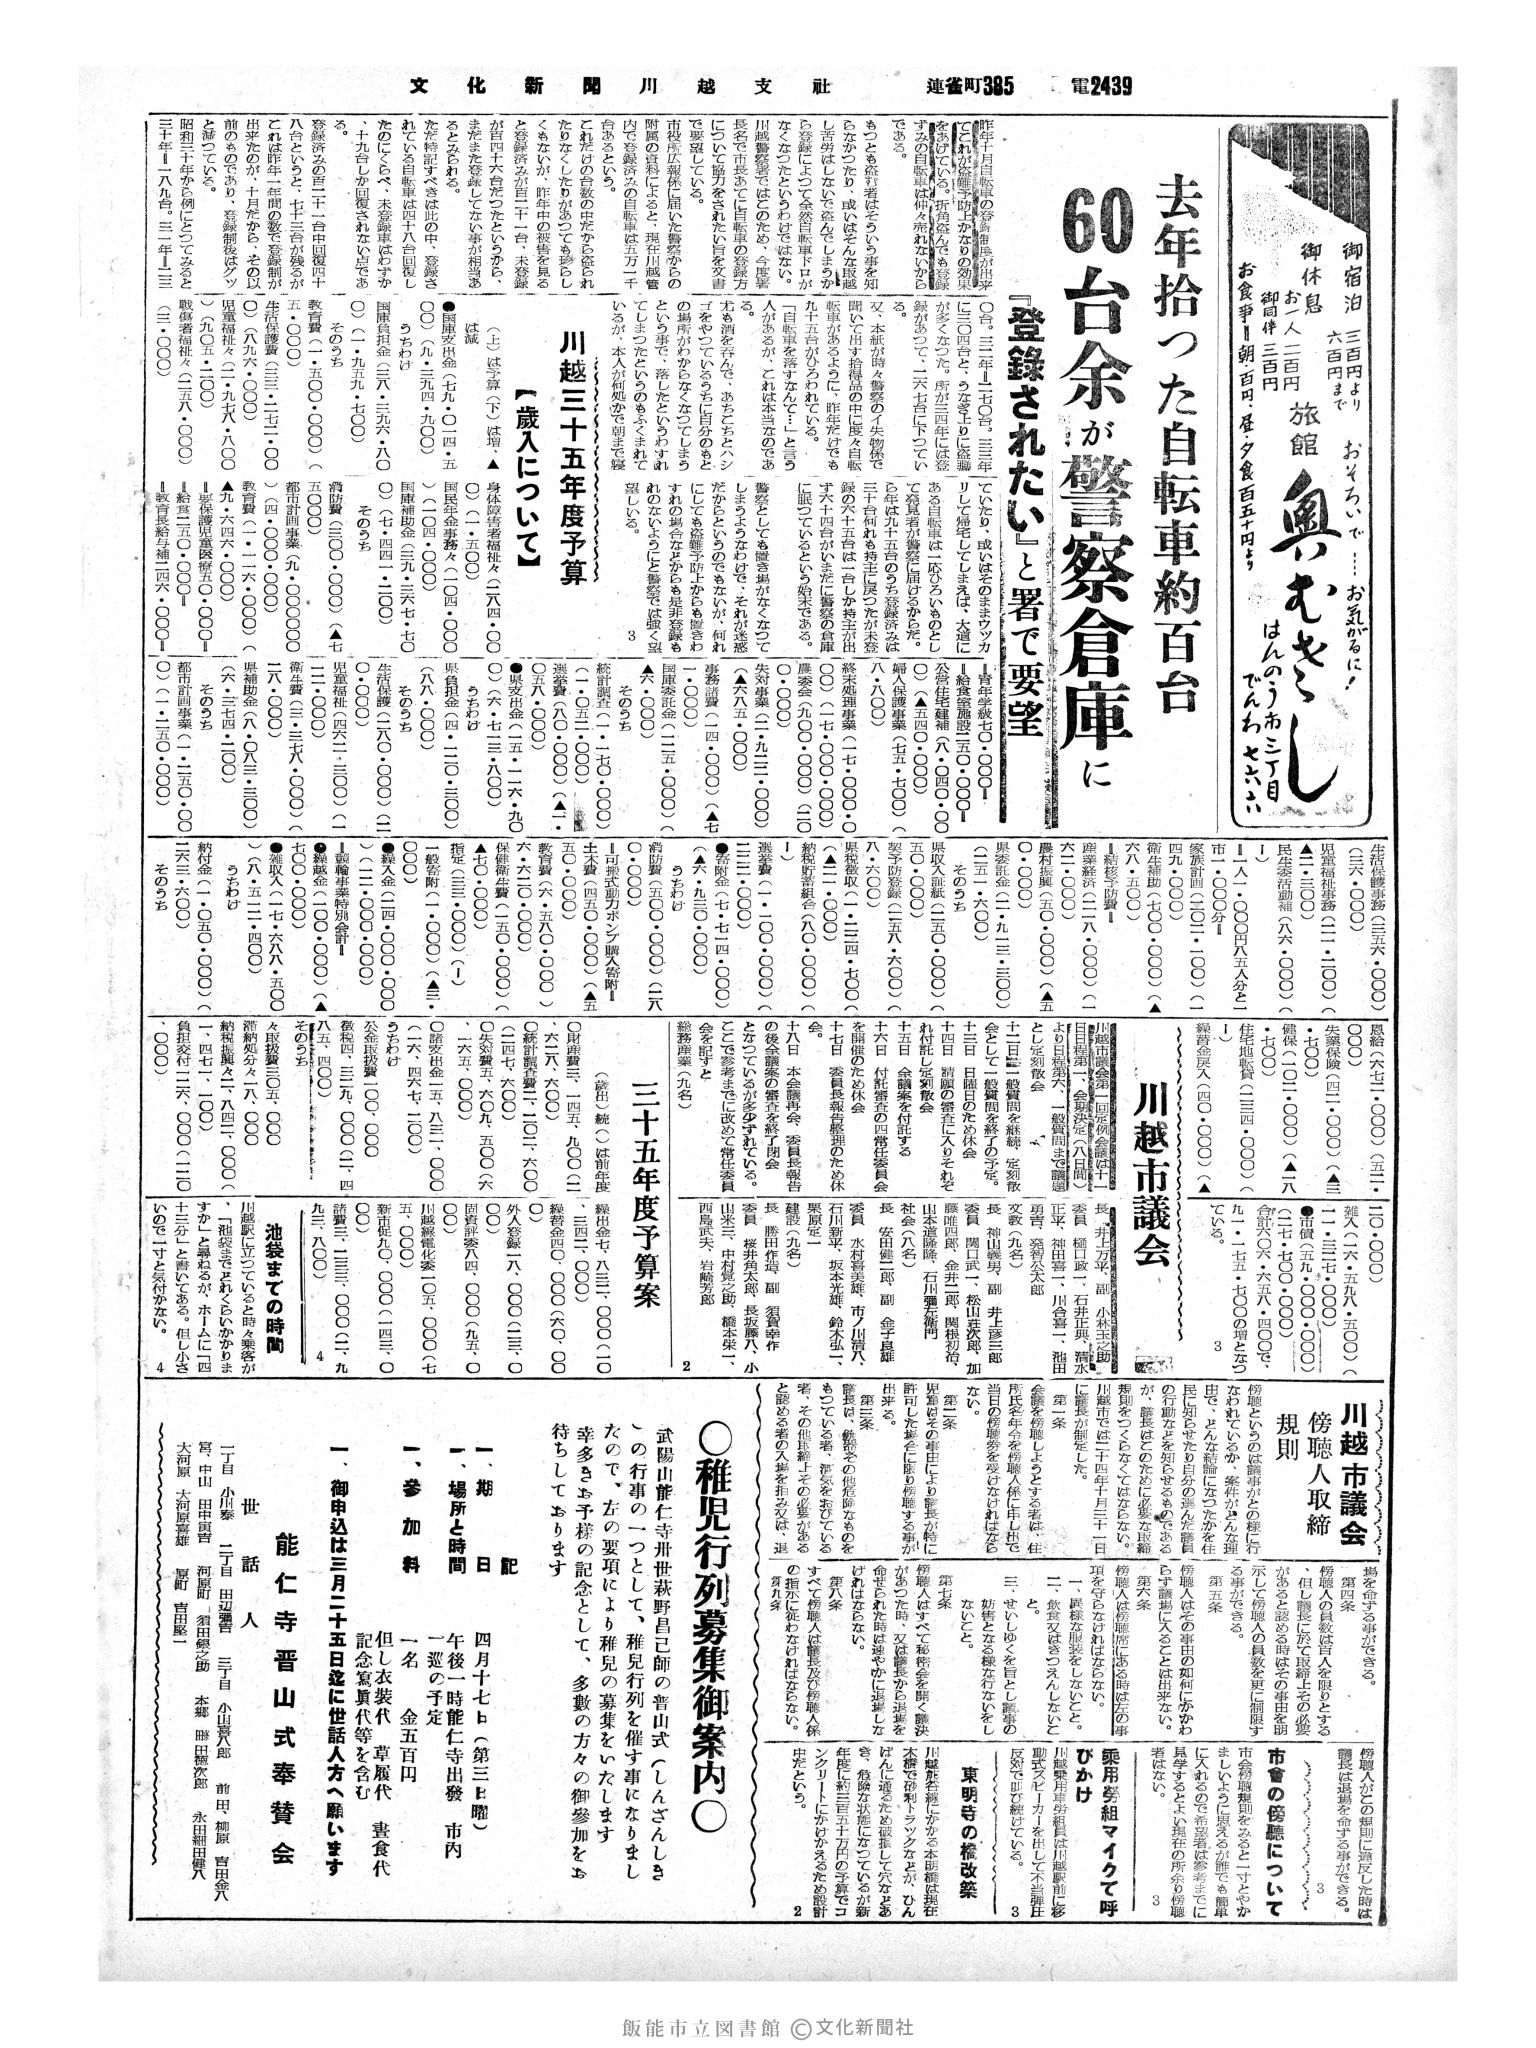 文化新聞川越支社　連雀町385　電2439
御宿泊　三百円より
六百円まで
御休息　お一人　二百円
御同伴　三百円
お食事＝朝・百円、昼・夕食百五十円より
おそろいで……お気がるに！
旅館　奥むさし
はんのう市三丁目
でんわ　七六六
去年拾った自転車約百台
60台余が警察倉庫に
『登録されたい』と署で要望
昨年十月自転車の登録制度が出来
てこれが盗難予防上かなりの効果
をあげている。折角盗んでも登録
ずみの自転車は仲々売れないから
である。
もつとも盗む者はそういう事を知
らなかつたり、或いはそんな取越
し苦労はしないで盗んでしまうか
ら登録によつて全然自転車ドロが
なくなつたというわけではない。
川越警察署ではこのため、今度署
長名で市長あてに自転車の登録方
について協力をされたい旨を文書
で要望している。
市役所広報係に届いた警察からの
附属の資料によると、現在川越管
内で登録済みの自転車は五万一千
台あるという。
これだけの台数の中だから盗られ
たりなくしたりがあつても珍らし
くもないが、昨年中の被害を見る
と登録済みが百二十一台、未登録
が百四十六台だつたというから、
まだまだ登録してない事が相当あ
るとみられる。
ただ特記すべきは此の中、登録さ
れている自転車は四十八台回復し
たのにくらべ、未登録車はわずか
、十九台しか回復されない点であ
る。
登録済みの百二十一台中回復四十
八台というと、七十三台が残るが
これは昨年一年間の数で登録制が
出来たのが、十月だから、その以
前のものであり、登録制後はグッ
と減つている。
昭和三十年から例にとつてみると
三十年＝一八九台。三一年＝二三
〇台。三二年＝二七〇台。三三年
に三〇四台と、うなぎ上りに盗難
が多くなつた。所が三四年には登
録があつて、二六七台に下つてい
る。
又、本紙が時々警察のイ失物係で
聞いて出す拾得品の中に度々自転
転車があるように、昨年だけでも
九十五台がひろわれている。
「自転車を落すなんて…」と言う
人があるが、これは本当なのであ
る。
尤も酒を呑んで、あちこちとハシ
ゴをやつているうちに自分のもと
の場所がわからなくなつてしまう
という事で、落したというわすれ
てしまつたというのもふくまれて
いるが、本人が何処かで朝まで寝
ていたり、或いはそのままウツカ
リして帰宅してしまえば、大道に
ある自転車は一応ひろいものとし
て発見者が警察に届けるからだ。
ら年は九十五台のうち登録済みは
三十台何れも持主に戻つたが未登
録の六十五台は一台しか持主が出
ず六十四台がいまだに警察の倉庫
に眠つているという始末である。
警察としても置き場がなくなつて
しまうようなわけで、それが迷惑
だからというのでもないが、何れ
にしても盗難予防上からも置きわ
すれの場合などからも是非登録も
れのないようにと警察では強く望
望しいる。　3
川越三十五年度予算
【歳入について】
（上）は予算（下）は増、▲
は減
●国庫支出金（七九・〇一四・五
〇〇）（九・三九四・九〇〇）
うちわけ
国庫負担金（三八・三九六・八〇
〇）（一・九五九・七〇〇）
そのうち
教育費（一・五〇〇・〇〇〇）（
五・〇〇〇）
生活保護費（三三・二七二・〇〇
〇）（八九六・〇〇〇）
児童福祉々（二・九七八・八〇〇
）（九〇五・二〇〇）
戦傷者福祉々（二五八・〇〇〇）
（三・〇〇〇）
身体障害者福祉々（二八四・〇〇
〇）（一・五〇〇）
国民年金事務々（一〇四・〇〇〇
）（一〇四・〇〇〇）
国庫補助金（三九・三六七・七〇
〇）（七・四四一・二〇〇）
そのうち
消防費（三〇〇・〇〇〇）（▲七
五〇〇〇）
都市計画事業（九・〇〇〇〇〇〇
）（四・〇〇〇・〇〇〇）
教育費（一・一一六・〇〇〇）（
▲九・六四六・〇〇〇）
＝要保護児童医療五〇・〇〇〇＝
＝給食二五〇・〇〇〇＝
＝教育長給与補二四六・〇〇〇＝
＝青年学級七〇・〇〇〇＝
＝給食室施設二五〇・〇〇〇＝
公営住宅建補（八・〇四〇・〇〇
〇）（▲五四〇・〇〇〇）
婦人保護事業（七五・七〇〇）（
八・八〇〇）
終末処理事業（一七・〇〇〇・〇
〇〇）（一七・〇〇〇・〇〇〇）
農委会（九〇〇・〇〇〇）（二〇
〇・〇〇〇）
失対事業（二・九二二・〇〇〇）
（▲六八五・〇〇〇）
事務諸費（一四・〇〇〇）（▲七
一・〇〇〇）
国庫委託金（一二五・〇〇〇）（
▲六・〇〇〇）
そのうち
統計調査（一・一七〇・〇〇〇）
（一・〇五二・〇〇〇）
選挙費（八〇・〇〇〇）（▲一・
〇五八・〇〇〇）
●県支出金（一五・一一六・九〇
〇）（六・七一三・八〇〇）
うちわけ
県負担金（四・一二〇・三〇〇）
（八八・〇〇〇）
そのうち
生活保護（二八〇・〇〇〇）（二
〇・〇〇〇）
児童福祉（四六二・三〇〇）（一
二二・〇〇〇）
衛生費（三・三七八・〇〇〇）（
二八・〇〇〇）
県補助金（八・〇八三・三〇〇）
（六・三七四・二〇〇）
そのうち
都市計画事業（一・二五〇・〇〇
〇）（一・二五〇・〇〇〇）
生活保護事務（三五六・〇〇〇）
（三六・〇〇〇）
児童福祉事務（二一・二〇〇）（
▲二・三〇〇）
民生委活動補（八六・〇〇〇）（
ー）
＝一人一・〇〇〇円八五人分と二
市一・〇〇〇分＝
家族計画（二〇二・一〇〇）（
四九・〇〇〇）
衛生補助（七〇〇・〇〇〇）（▲
六八・五〇〇）
＝結核予防費＝
産業経済（二一八・〇〇〇）（一
六二・〇〇〇）
農村振興（五〇・〇〇〇）（▲五
〇・〇〇〇）
県委託金（二・九一三・三〇〇）
（二五一・六〇〇）
そのうち
県収入証紙（二五〇・〇〇〇）（
五〇・〇〇〇）
契予防登録（二五八・六〇〇）（
八・六〇〇）
県税徴収（一・二二四・七〇〇）
（▲二一・〇〇〇）
納税貯蓄組合（八〇・〇〇〇）（
ー）
選挙費（一・一〇〇・〇〇〇）（
二三二・〇〇〇）
●寄附金（七・七一四・〇〇〇）
（▲六・九三〇・〇〇〇）
うちわけ
消防費（五〇・〇〇〇）（二八
〇・〇〇〇）
＝可搬式動力ポンプ購入寄附＝
土木費（四五〇・〇〇〇）（▲五
五〇・〇〇〇）
教育費（六・五八〇・〇〇〇）（
六・六二〇・〇〇〇）
保健衛生費（一五〇・〇〇〇）（
▲七〇・〇〇〇）
指定（三三・〇〇〇）（ー）
一般寄附（一・〇〇〇）（▲三・
〇〇〇）
●繰入金（二四・〇〇〇・〇〇〇
）（一二・〇〇〇・〇〇〇）
＝競輪事業特別会計＝
●繰越金（一〇〇・〇〇〇）（▲
七〇〇・〇〇〇）
●雑収入（一七・六八八・五〇〇
）（八・五一二・四〇〇）
うちわけ
納付金（一・〇五〇・〇〇〇）（
二六三・六〇〇）
そのうち
恩給（六七二・〇〇〇）（五二・
〇〇〇）
失業保険（四二・〇〇〇）（▲三
・七〇〇）
健保（一〇二・〇〇〇）（▲一八
・七〇〇）
住宅地転貸（二三四・〇〇〇）（
ー）
繰替金戻入（四〇・〇〇〇）（▲
二〇・〇〇〇）
雑入（一六・五九八・五〇〇）（
一一・三二七・〇〇〇）
●市債（五九・〇〇〇・〇〇〇）
（二七・七〇〇・〇〇〇）
合計六〇六・六五八・四〇〇で、
九一・一七五・七〇〇の増となつ
ている。　3
川越市議会
川越市議会第一回定例会議は十一
日日程第一、会期決定（八日間）
より日程第六、一般質問まで議題
とし定刻散会
十二日　一般質問を継続、定刻散
会として一般質問を終了の予定。
十三日　日曜日のため休会
十四日　請願の審査に入りそれぞ
れ付託し定刻散会
十五日　全議案を付託する
十六日　付託審査の四常任委員会
を開催のため休会
十七日　委員長報告整理のため休
会。
十八日　本会議再会、委員長報告
の後全議案の審査を終了閉会
となつているが多少ずれている。
ここで参考までに改めて常任委員
会を記すと
総務産業（九名）
長、井上万平、副　小林玉之助
委員　樋口政一、石井正興、清水
正平、神田喜一、川合喜一、池田
勇吉、発智公太郎
文教（九名）
長　神山義男、副　井上彦三郎
委員　関口武一、松山荘次郎、加
藤唯四郎、金井二郎、関根初治、
山本道隆隆、石川彌左衛門
社会（八名）
長　安田健二郎、副　金子良雄
委員　水村喜美雄、市ノ川清八、
石川新平、坂本光雄、鈴木弘一、
栗原定一
建設（九名）
長　勝田作造、副　須賀幸作
委員　桜井角太郎、長坂藤八、小
山米三、中村覚之助、橋本栄一、
西島武夫、岩崎芳郎　2
三十五年度予算案
（歳出）続（）は前年度
〇財産費三、一四五、九〇〇（二
、六二八、六〇〇）
〇統計調査費二、二〇二、六〇〇
（二四七、七〇〇）
〇失対費五、六〇九、五〇〇（六
、一六五、〇〇〇）
〇諸支出金一五、八三一、〇〇〇
（一六、四六七、二〇〇）
うちわけ
公金取扱費一〇〇、〇〇〇
徴税四、三二九、〇〇〇（二、四
八五、四〇〇）
そのうち
々取扱費三〇五、〇〇〇
滞納処分々一八、〇〇〇
納税振興々二、八四二、〇〇〇（
一、四七一、一〇〇）
負担交付一二六、〇〇〇（一二〇
、〇〇〇）
繰出金七、八三二、〇〇〇（一二
、三四二、〇〇〇）
繰替金四〇、〇〇〇（六〇、〇〇
〇）
外人登録一八、〇〇〇（二三、〇
〇〇）
固資評委八四、〇〇〇（九五、〇
〇〇）
川越線電化委一〇五、〇〇〇（七
五、〇〇〇）
新市促九〇、〇〇〇（一四三、〇
〇〇）
諸費三、二三三、〇〇〇（二、九
九三、八〇〇）　4
池袋までの時間
川越駅に立つていると時々乗客が
、「池袋までどれくらいかかりま
すか」と尋ねるが、ホームに「四
十三分」と書いてある。但し小さ
いので一寸と気付かない。　4
川越市議会
傍聴人取締
規則
傍聴というのは議事がどの様に行
なわれているか、案件がどんな理
由で、どんな結論になつたかを住
民に知らせたり自分の選んだ議員
の行動などを知らせるものである
が、議長はこのために必要な取締
規則をつくらなくてはならない。
川越市では二十四年十月三十一日
に議長が制定した。
第一条
会議を傍聴しようとする者は、住
所氏名年令を傍聴人係に申し出で
当日の傍聴券を受けなければなら
ない。
第二条
児童はその事由により議長が特に
許可した場合に限り傍聴する事が
出来る。
第三条
議長は、戦器その他危険なものを
もつている者、酒気をおびている
者、その他取締上その必要がある
と認める者の入場を拒み又は、退
場を命ずる事ができる。
第四条
傍聴人の員数は百人を限りとする
、但し議長に於て取締上その必要
があると認める時はその事由を明
示して傍聴人の員数を更に制限す
る事ができる。
第五条
傍聴人はその事由の如何にかかわ
らず議場に入ることは出来ない。
第六条
傍聴人は傍聴席にある時は左の事
項を守らなければならない。
一、異様な服装をしないこと。
二、飲食又はきつえんしないこ
と。
三、せいしゆくを旨とし議事の
妨害となる様な行ないをし
ないこと。
第七条
傍聴人はすべて秘密会を開く議決
があつた時、又は議長から退場を
命ぜられた時は速やかに退場しな
ければならない。
第八条
すべて傍聴人は議長及び傍聴人係
の指示に従わなければならない。
第九条
傍聴人がこの規則に違反した時は
議長は退場を命ずる事ができる。
3
市会の傍聴について
市会傍聴規則をみると一寸とやか
ましいように思えるが誰でも簡単
に入れるので希望者は参考までに
見学するとよい現在の所余り傍聴
者はない。　3
乗用労組マイクで呼
びかけ
川越乗用車労組員は川越駅前に移
動式スピーカーを出して不当弾圧
反対で叫び続けている。　3
東明寺の橋改築
川越熊谷線にかかる本明橋は現在
木橋で砂利トラックなどが、ひん
ぱんに通るため破損して穴などあ
き、危険な状態になつているが新
年度に約三百五十万円の予算でコ
ンクリートにかけかえるため設計
中だという。　2
〇稚児行列募集御案内〇
武陽山能仁寺卅世萩野昌己師の晋山式（しんざんしき
）の行事の一つとして、稚児行列を催す事になりまし
たので、左の要項により稚児の募集をいたします
幸多きお予様の記念として、多數の方々の御参加をお
待ちしております
記
一、期日　四月十七日（第三日曜）
一、場所と時間　午後一時能仁寺出發　市内
一巡の予定
一、参加料　一名　金五百円
但し衣裝代　草履代　晝食代
記念寫眞代等を含む
一、御申込は三月二十五日迄に世話人方へ願います
能仁寺晋山式奉賛会
世話人
一丁目　小川泰　二丁目　田辺彌吉　三丁目　小山喜八郎　前田、柳原　吉田金八
宮、中山　田中寅吉　河原町　須田銀之助　本郷　勝田徳次郎　永田細田健八
大河原　大河原喜雄　原町　吉田堅一
飯能市立図書館 Ⓒ文化新聞社